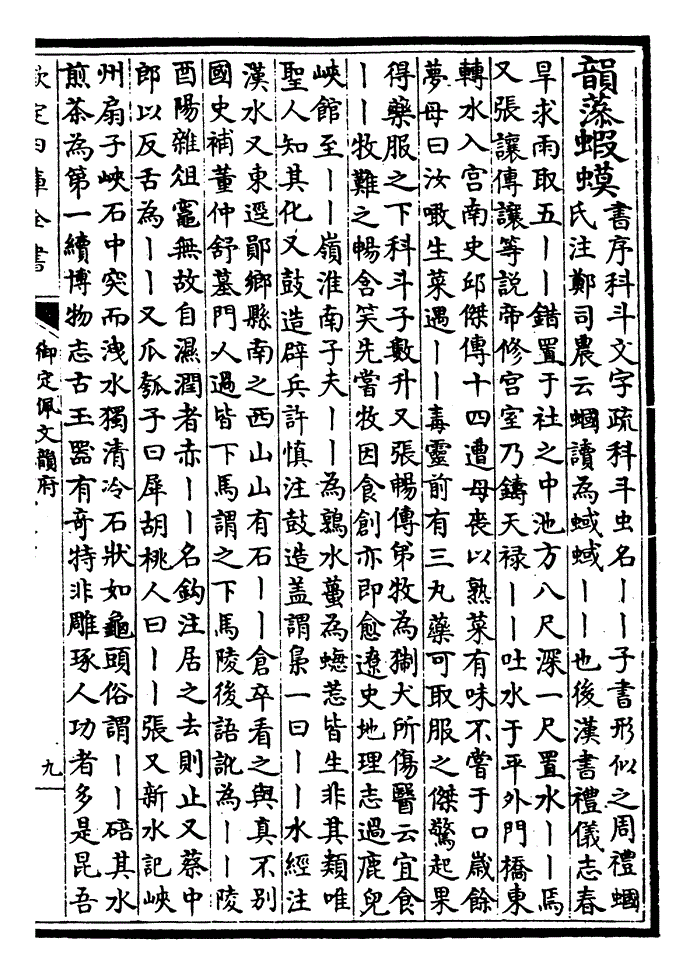 韻藻蝦蟇
書序科斗文字疏科斗虫名丨丨子書形似之周禮蟈
氏注鄭司農云蟈讀為蜮蜮丨丨也後漢書禮儀志春
旱求雨取五丨丨錯置于社之中池方八尺深一尺置水丨丨焉
又張讓傳讓等説帝修宫室乃鑄天禄丨丨吐水于平外門橋東
轉水入宫南史邱傑傳十四遭母喪以熟菜有味不嘗于口嵗餘
夢母曰汝噉生菜遇丨丨毒靈前有三丸藥可取服之傑驚起果
得藥服之下科斗子數升又張暢傳弟牧為猘犬所傷醫云宜食
丨丨牧難之暢含笑先嘗牧因食創亦即愈遼史地理志過鹿兒
峽館至丨丨嶺淮南子夫丨丨為鶉水蠆為蟌惹皆生非其類唯
聖人知其化又鼓造辟兵許慎注鼓造盖謂梟一曰丨丨水經注
漢水又東逕鄖鄉縣南之西山山有石丨丨倉卒看之與真不别
國史補董仲舒墓門人過皆下馬謂之下馬陵後語訛為丨丨陵
酉陽雜俎竈無故自濕潤者赤丨丨名鈎注居之去則止又蔡中
郎以反舌為丨丨又瓜瓠子曰犀胡桃人曰丨丨張又新水記峽
州扇子峽石中突而洩水獨清冷石狀如龜頭俗謂丨丨碚其水
煎茶為第一續博物志古玉器有竒特非雕琢人功者多是昆吾
欽定四庫全書
御定佩文韻府
九